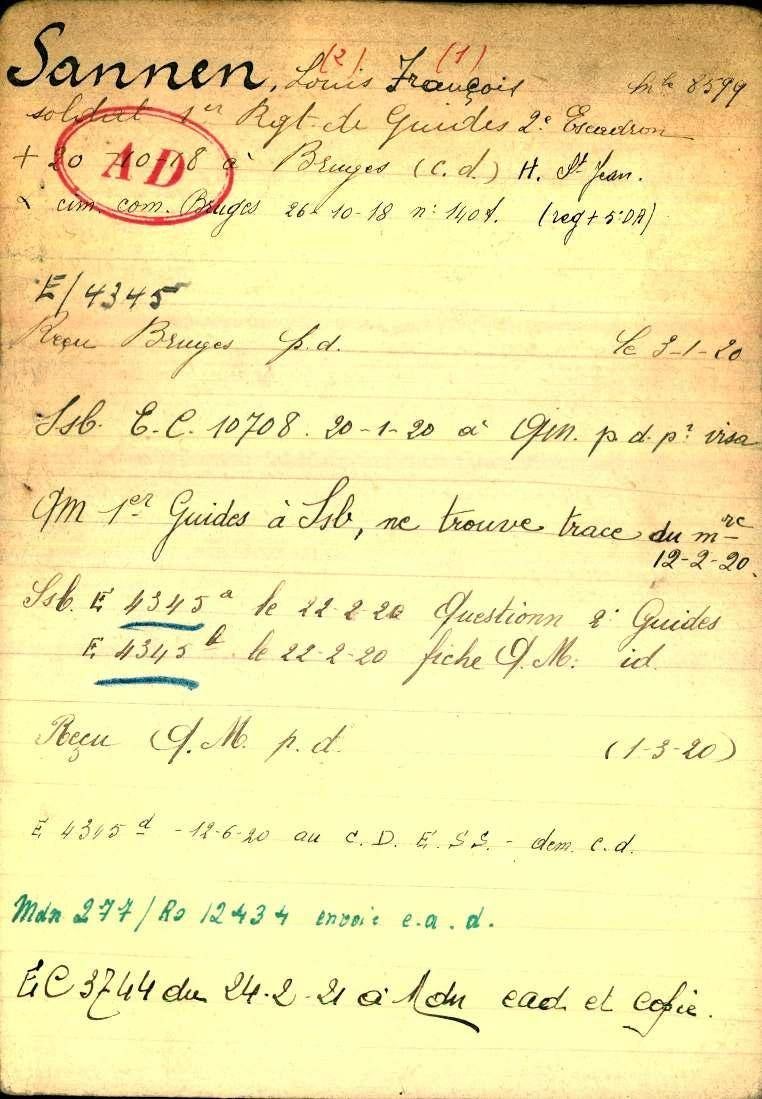 (2) (1)
Sannen, Louis François mle 8599
soldat 1er Rgt. de Guides 2e Escadron
+ 20-10-18 à Bruges (c.d.) H. St Jean.
AD
cim. com. Bruges 26-10-18 n° 1401. (reg + 5°DA)
E/4345
Reçu Bruges p.d. le 3-1-20
Ssb. E.C. 10708. 20-1-20 à QM. p.d. pr visa
QM 1er Guides à Ssb, ne trouve trace du mre
12-2-20.
Ssb. E 4345a le 22-2-20 Questionn 2e Guides
E 4345b le 22-2-20 fiche Q.M: id.
Reçu Q.M. p.d. (1-3-20)
E 4345d -12-6-20 au C.D.E.SS. - dem. c.d.
Mdn 277/Ro 12434 envoie e.a.d.
EC 3744 du 24-2-21 à Mdn ead et copie.